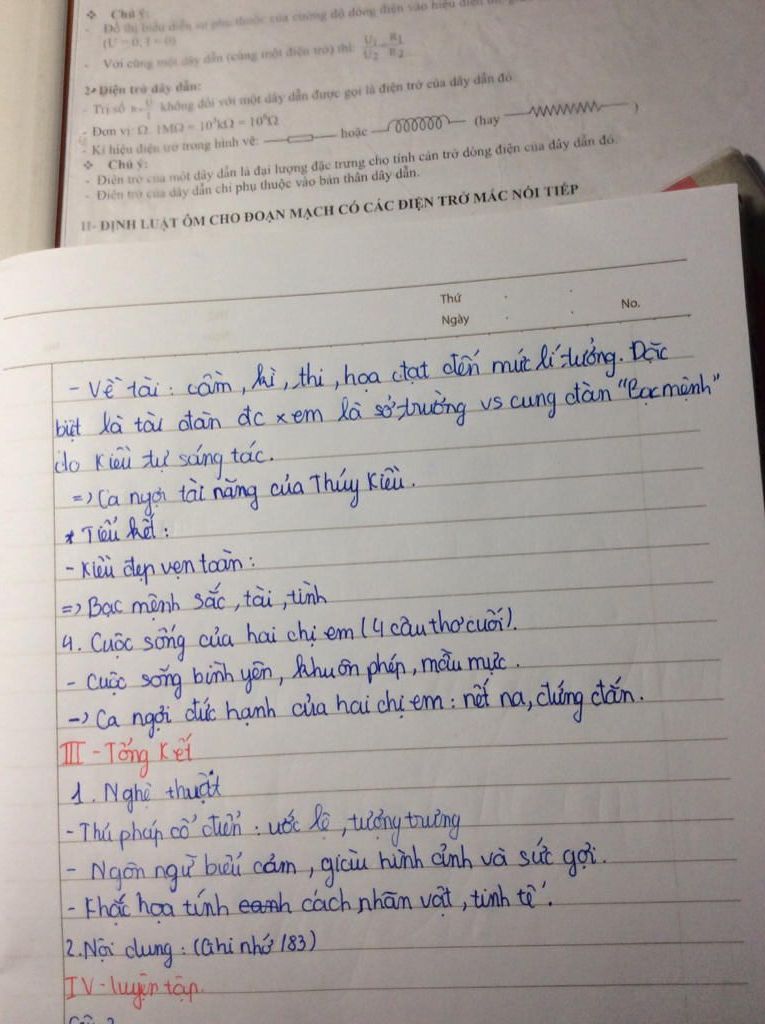 ❖ Chú ý:
- Đồ thị biểu diễn sự phụ thuộc của cường độ dòng điện vào hiệu điện
(U = 0, I = 0)
- Với cùng một dây dẫn (cùng một điện trở) thì: U1/U2 = R1/R2
2- Điện trở dây dẫn:
- Trị số R=U/I không đổi với một dây dẫn được gọi là điện trở của dây dẫn đó.
- Đơn vị: Ω. 1MΩ = 10³kΩ = 10⁶Ω
- Kí hiệu điện trở trong hình vẽ: hoặc (hay )
❖ Chú ý:
- Điện trở của một dây dẫn là đại lượng đặc trưng cho tính cản trở dòng điện của dây dẫn đó.
- Điện trở của dây dẫn chỉ phụ thuộc vào bản thân dây dẫn.
II- ĐỊNH LUẬT ÔM CHO ĐOẠN MẠCH CÓ CÁC ĐIỆN TRỞ MẮC NỐI TIẾP
Thứ
Ngày No.
- Về tài: cầm, kì, thi, họa đạt đến mức lí tưởng. Đặc
biệt là tài đàn đc xem là sở trường vs cung đàn "Bạc mệnh"
do Kiều tự sáng tác.
=> Ca ngợi tài năng của Thúy Kiều.
* Tiểu kết:
- Kiều đẹp vẹn toàn:
=> Bạc mệnh sắc, tài, tình
4. Cuộc sống của hai chị em (4 câu thơ cuối).
- Cuộc sống bình yên, khuôn phép, mẫu mực.
-> Ca ngợi đức hạnh của hai chị em: nết na, đứng đắn.
III - Tổng Kết
1. Nghệ thuật
- Thủ pháp cổ điển: ước lệ, tượng trưng
- Ngôn ngữ biểu cảm, giàu hình ảnh và sức gợi.
- Khắc họa tính cách nhân vật, tinh tế.
2. Nội dung: (Ghi nhớ 183)
IV - luyện tập.